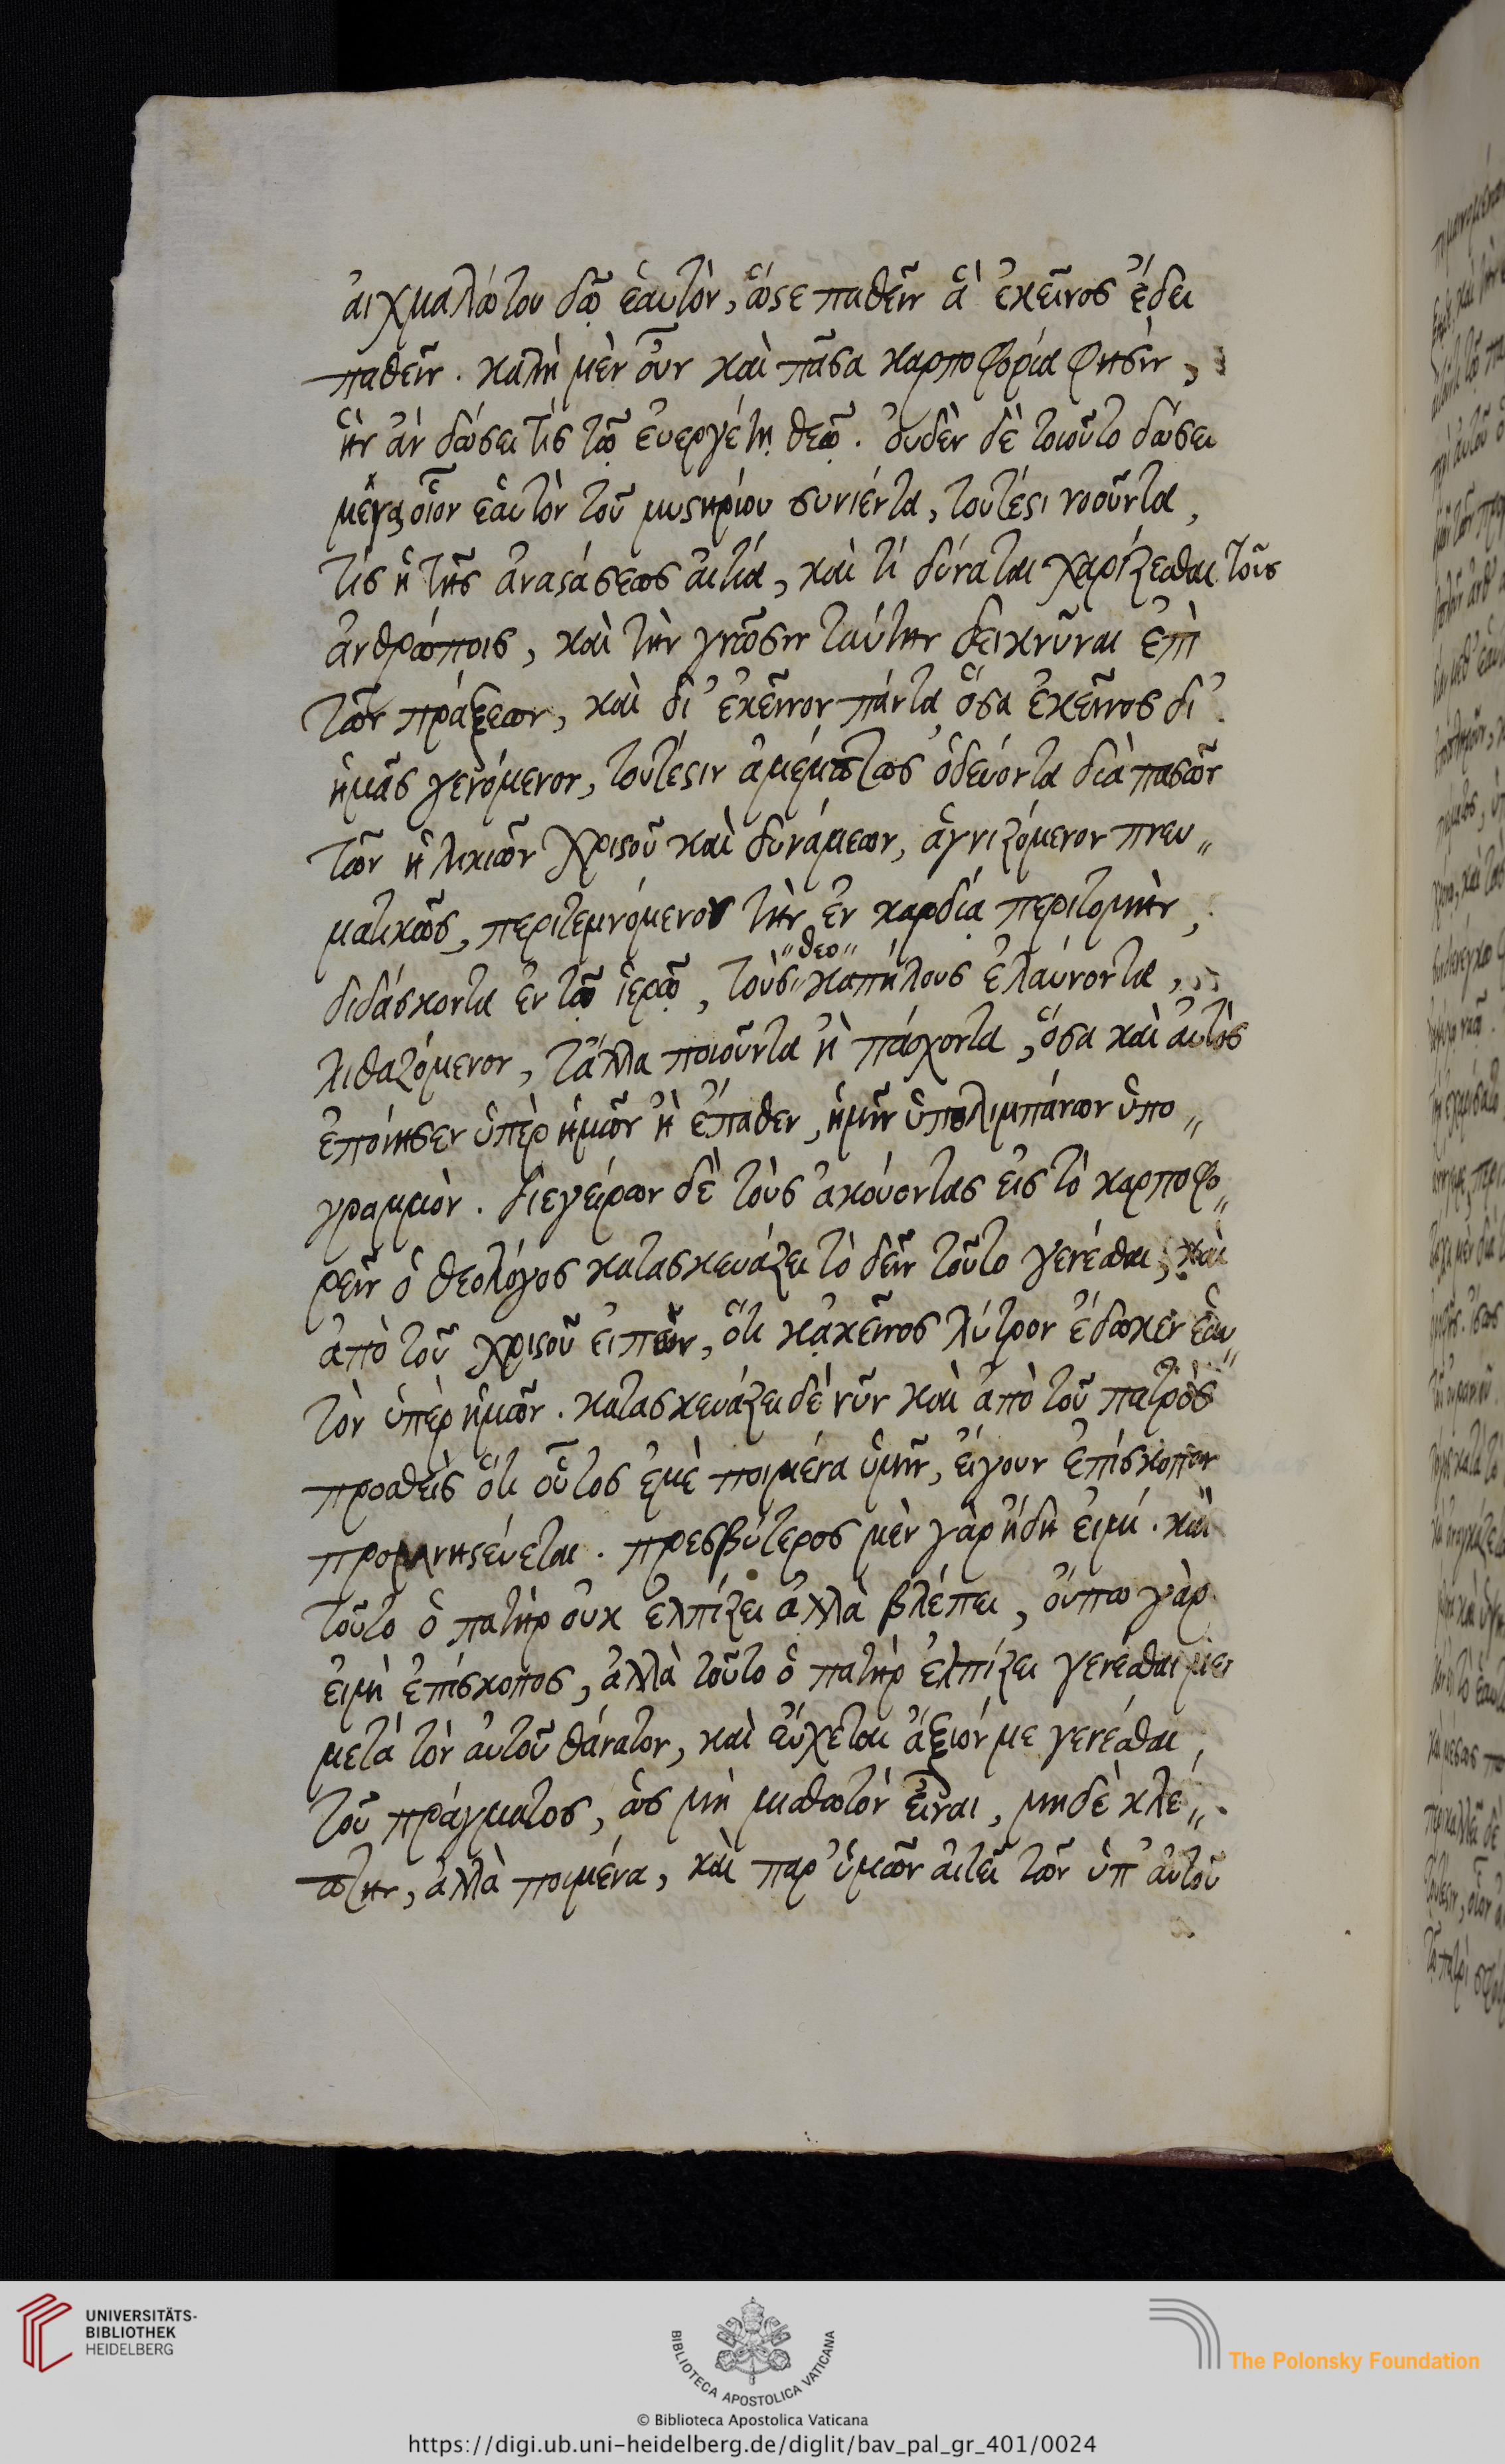 αἰχμαλώτου δῷ ἑαυτὸν, ὥστε παθεῖν ἃ ἐκεῖνος ἔδει
παθεῖν. καλὴ μὲν οὖν καὶ πᾶσα καρποφορία φησὶν,
ἣν ἂν δώσει τίς τῷ εὐεργέτῃ θεῷ. οὐδὲν δὲ τοιοῦτο δώσει
μέγα οἷον ἑαυτὸν τοῦ μυστηρίου συνιέντα, τουτέστι νοοῦντα,
τίς ἡ τῆς ἀναστάσεως αἰτία, καὶ τί δύναται χαρίζεσθαι τοῖς
ἀνθρώποις, καὶ τὴν γνῶσιν ταύτην δεικνῦναι ἐπὶ
τῶν πράξεων, καὶ δι' ἐκεῖνον πάντα ὅσα ἐκεῖνος δι'
ἡμᾶς γενόμενον, τουτέστιν ἀμέμπτως ὁδεύοντα διὰ πασῶν
τῶν ἡλικιῶν χριστοῦ καὶ δυνάμεων, ἁγνιζόμενον πνευ„
ματικῶς, περιτεμνόμενον τὴν ἐν καρδίᾳ περιτομὴν,
„θεο„
διδάσκοντα ἐν τῷ ἱερῷ, τοὺς„καπήλους ἐλαύνοντα,
λιθαζόμενον, τἄλλα ποιοῦντα ἢ πάσχοντα, ὅσα καὶ αὐτὸς
ἐποίησεν ὑπὲρ ἡμῶν ἢ ἔπαθεν, ἡμῖν ὑπολιμπάνων ὑπο„
γραμμὸν. διεγείρων δὲ τοὺς ἀκούοντας εἰς τὸ καρποφο„
ρεῖν ὁ θεολόγος κατασκευάζει τὸ δεῖν τοῦτο γενέσθαι, καὶ
ἀπὸ τοῦ χριστοῦ εἰπὼν, ὅτι κᾀκεῖνος λύτρον ἔδωκεν ἑαυ„
τὸν ὑπὲρ ἡμῶν. κατασκευάζει δὲ νῦν καὶ ἀπὸ τοῦ πατρὸς
προσθεὶς ὅτι οὗτος ἐμὲ ποιμένα ὑμῖν, εἴγουν ἐπίσκοπον
προμνηστεύεται. πρεσβύτερος μὲν γὰρ ἤδη εἰμί. καὶ
τοῦτο ὁ πατὴρ οὐκ ἐλπίζει ἀλλὰ βλέπει, οὔπω γὰρ
εἰμὴ ἐπίσκοπος, ἀλλὰ τοῦτο ὁ πατὴρ ἐλπίζει γενέσθαι με
μετὰ τὸν αὐτοῦ θάνατον, καὶ εὔχεται ἄξιόν με γενέσθαι,
τοῦ πράγματος, ὡς μὴ μισθωτὸν εἶναι, μηδὲ κλέ„
πτην, ἀλλὰ ποιμένα, καὶ παρ' ὑμῶν αἰτεῖ τῶν ὑπ' αὐτοῦ
UNIVERSITÄTS-
BIBLIOTHEK
HEIDELBERG
BIBLIOTECA APOSTOLICA VATICANA
The Polonsky Foundation
© Biblioteca Apostolica Vaticana
https://digi.ub.uni-heidelberg.de/diglit/bav_pal_gr_401/0024